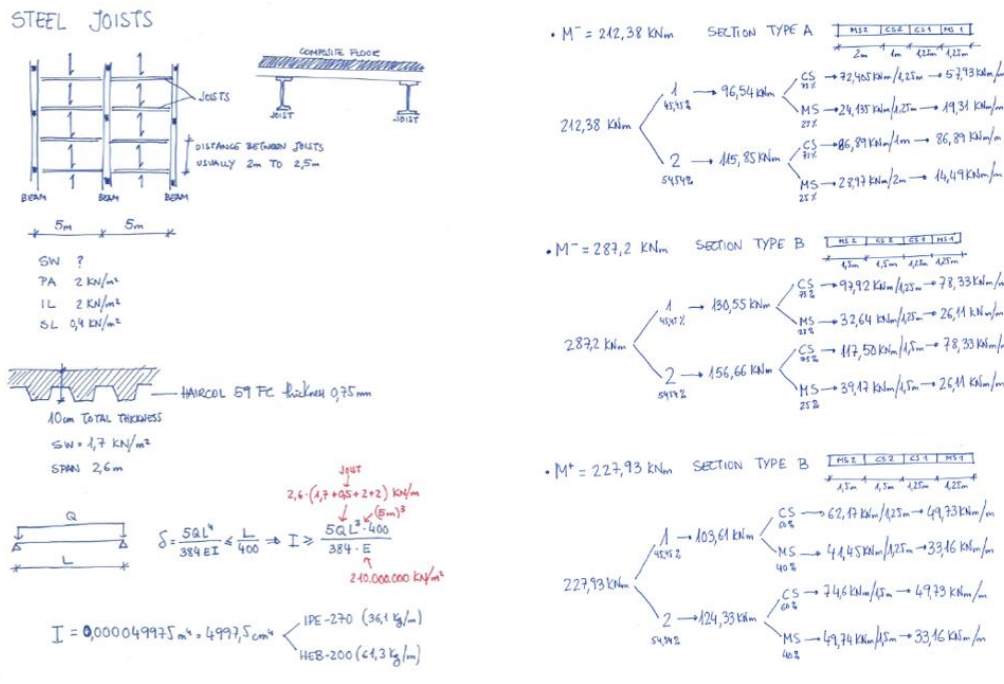 STEEL JOISTS
COMPOSITE FLOOR
JOISTS
JOIST
JOIST
DISTANCE BETWEEN JOISTS
USUALLY 2m TO 2,5m
BEAM BEAM BEAM
5m 5m
SW ?
PA 2 KN/m²
IL 2 KN/m²
SL 0,4 KN/m²
HAIRCOL 59 FC thickness 0,75mm
10cm TOTAL THICKNESS
SW = 1,7 KN/m²
SPAN 2,6m
JOIST
2,6·(1,7+0,5+2+2) KN/m
(5m)³
Q
L
δ = 5QL⁴/384EI ≤ L/400 ⇒ I ≥ 5QL³·400/384·E
210.000.000 KN/m²
I = 0,000049975 m⁴ = 4997,5 cm⁴
IPE-270 (36,1 Kg/m)
HEB-200 (61,3 Kg/m)
• M⁻ = 212,38 KNm SECTION TYPE A
MS2 CS2 CS1 MS1
2m 1m 1,25m 1,25m
212,38 KNm
1 45,45% → 96,54 KNm
CS 75% → 72,405 KNm/1,25m → 57,93 KNm/m
MS 25% → 24,135 KNm/1,25m → 19,31 KNm/m
2 54,54% → 115,85 KNm
CS 75% → 86,89 KNm/1m → 86,89 KNm/m
MS 25% → 28,97 KNm/2m → 14,49 KNm/m
• M⁻ = 287,2 KNm SECTION TYPE B
MS2 CS2 CS1 MS1
1,5m 1,5m 1,25m 1,25m
287,2 KNm
1 45,45% → 130,55 KNm
CS 75% → 97,92 KNm/1,25m → 78,33 KNm/m
MS 25% → 32,64 KNm/1,25m → 26,11 KNm/m
2 54,54% → 156,66 KNm
CS 75% → 117,50 KNm/1,5m → 78,33 KNm/m
MS 25% → 39,17 KNm/1,5m → 26,11 KNm/m
• M⁺ = 227,93 KNm SECTION TYPE B
MS2 CS2 CS1 MS1
1,5m 1,5m 1,25m 1,25m
227,93 KNm
1 45,45% → 103,61 KNm
CS 60% → 62,17 KNm/1,25m → 49,73 KNm/m
MS 40% → 41,45 KNm/1,25m → 33,16 KNm/m
2 54,54% → 124,33 KNm
CS 60% → 74,6 KNm/1,5m → 49,73 KNm/m
MS 40% → 49,74 KNm/1,5m → 33,16 KNm/m